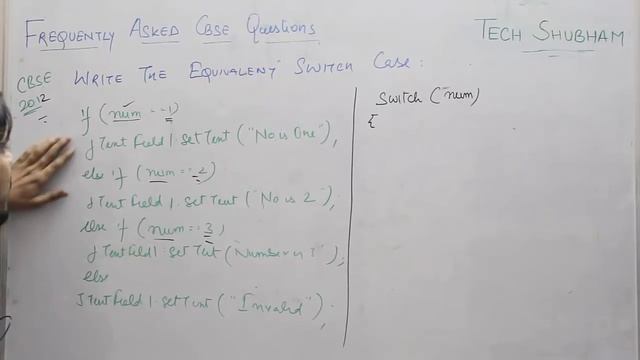 FREQUENTLY ASKED CBSE QUESTIONS
TECH SHUBHAM
CBSE 2012
WRITE THE EQUIVALENT SWITCH CASE:
if (num == 1)
jTextField1.setText("No is One");
else if (num == 2)
jTextField1.setText("No is 2");
else if (num == 3)
jTextField1.setText("Number is 3");
else
jTextField1.setText("Invalid");
Switch (num)
{